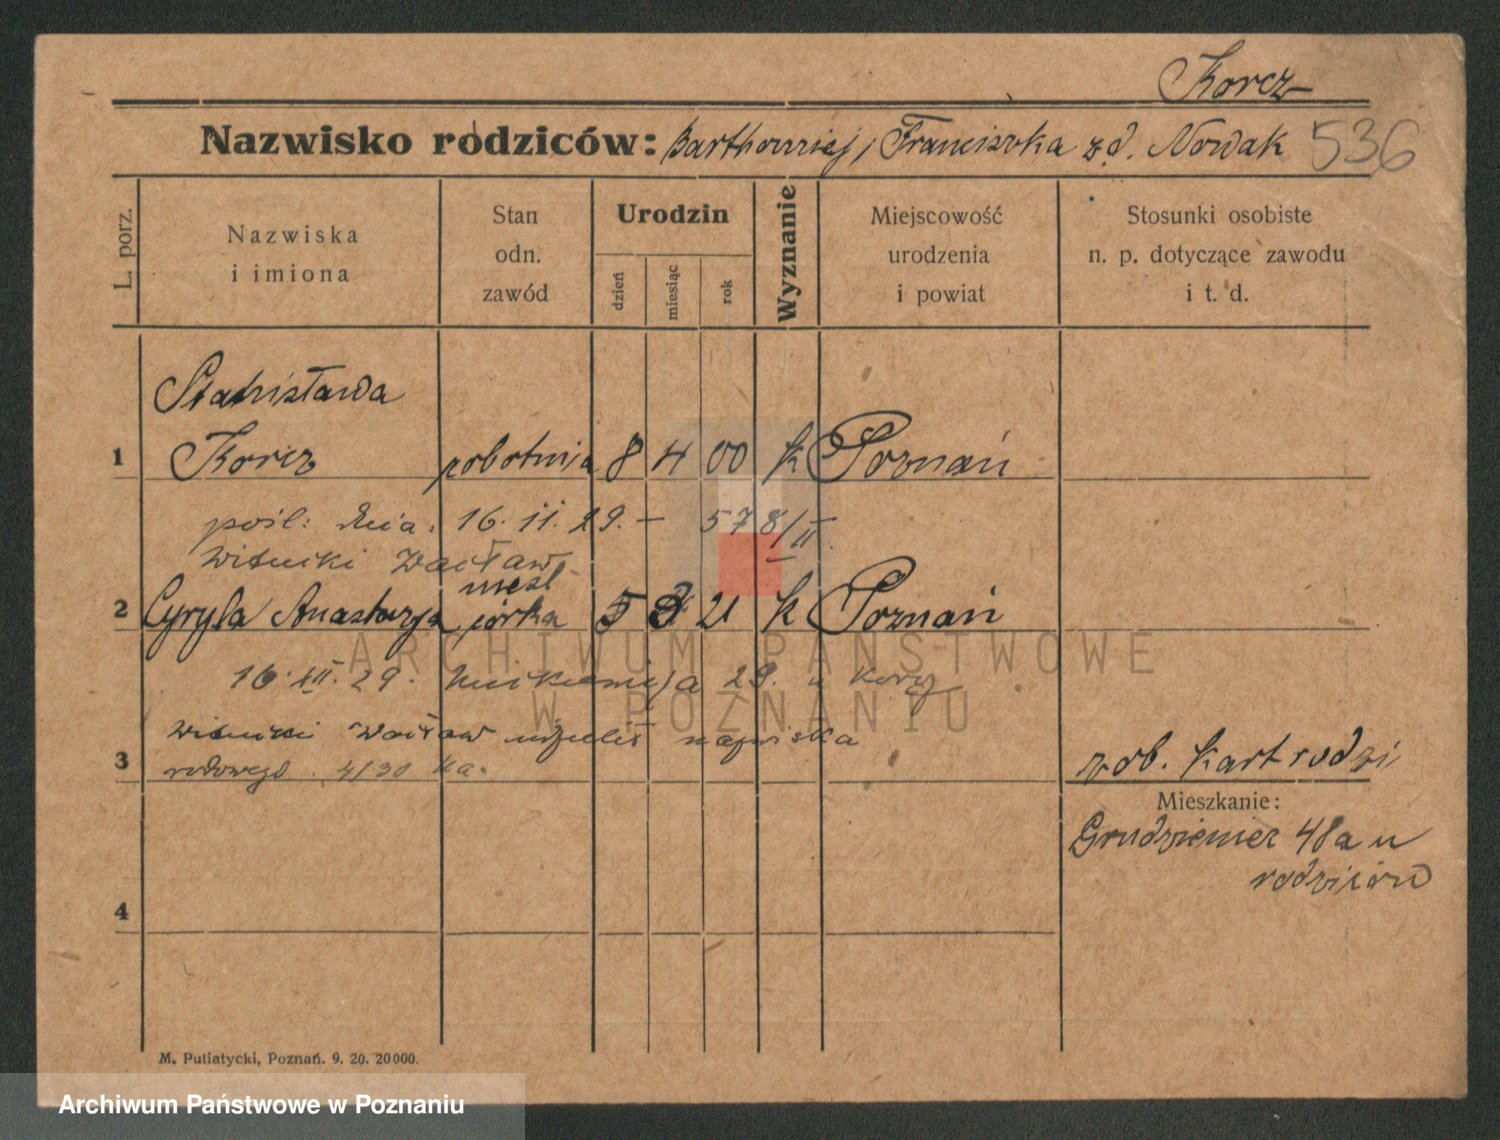 Korcz
Nazwisko rodziców: Barthomiej, Franciszka z d. Nowak 536
L. porz.
Nazwiska
i imiona
Stan
odn.
zawód
Urodzin
dzień
miesiąc
rok
Wyznanie
Miejscowość
urodzenia
i powiat
Stosunki osobiste
n. p. dotyczące zawodu
i t. d.
Stanisława
1 Korcz robotnica 8 4 00 k Poznań
pośl: dnia: 16. 11. 29. – 578/II.
Witucki Wacław
2 Cyryla Anastazja niesl córka 5 21 k Poznań
16. III. 29. 29. u
Wacław nazwiska
3 rodowego 4/30
zob. kart rodzi
Mieszkanie:
Grudzieniec 48a u
rodziców
4
M. Putiatycki, Poznań. 9. 20. 20000.
ARCHIWUM PAŃSTWOWE
W POZNANIU
Archiwum Państwowe w Poznaniu